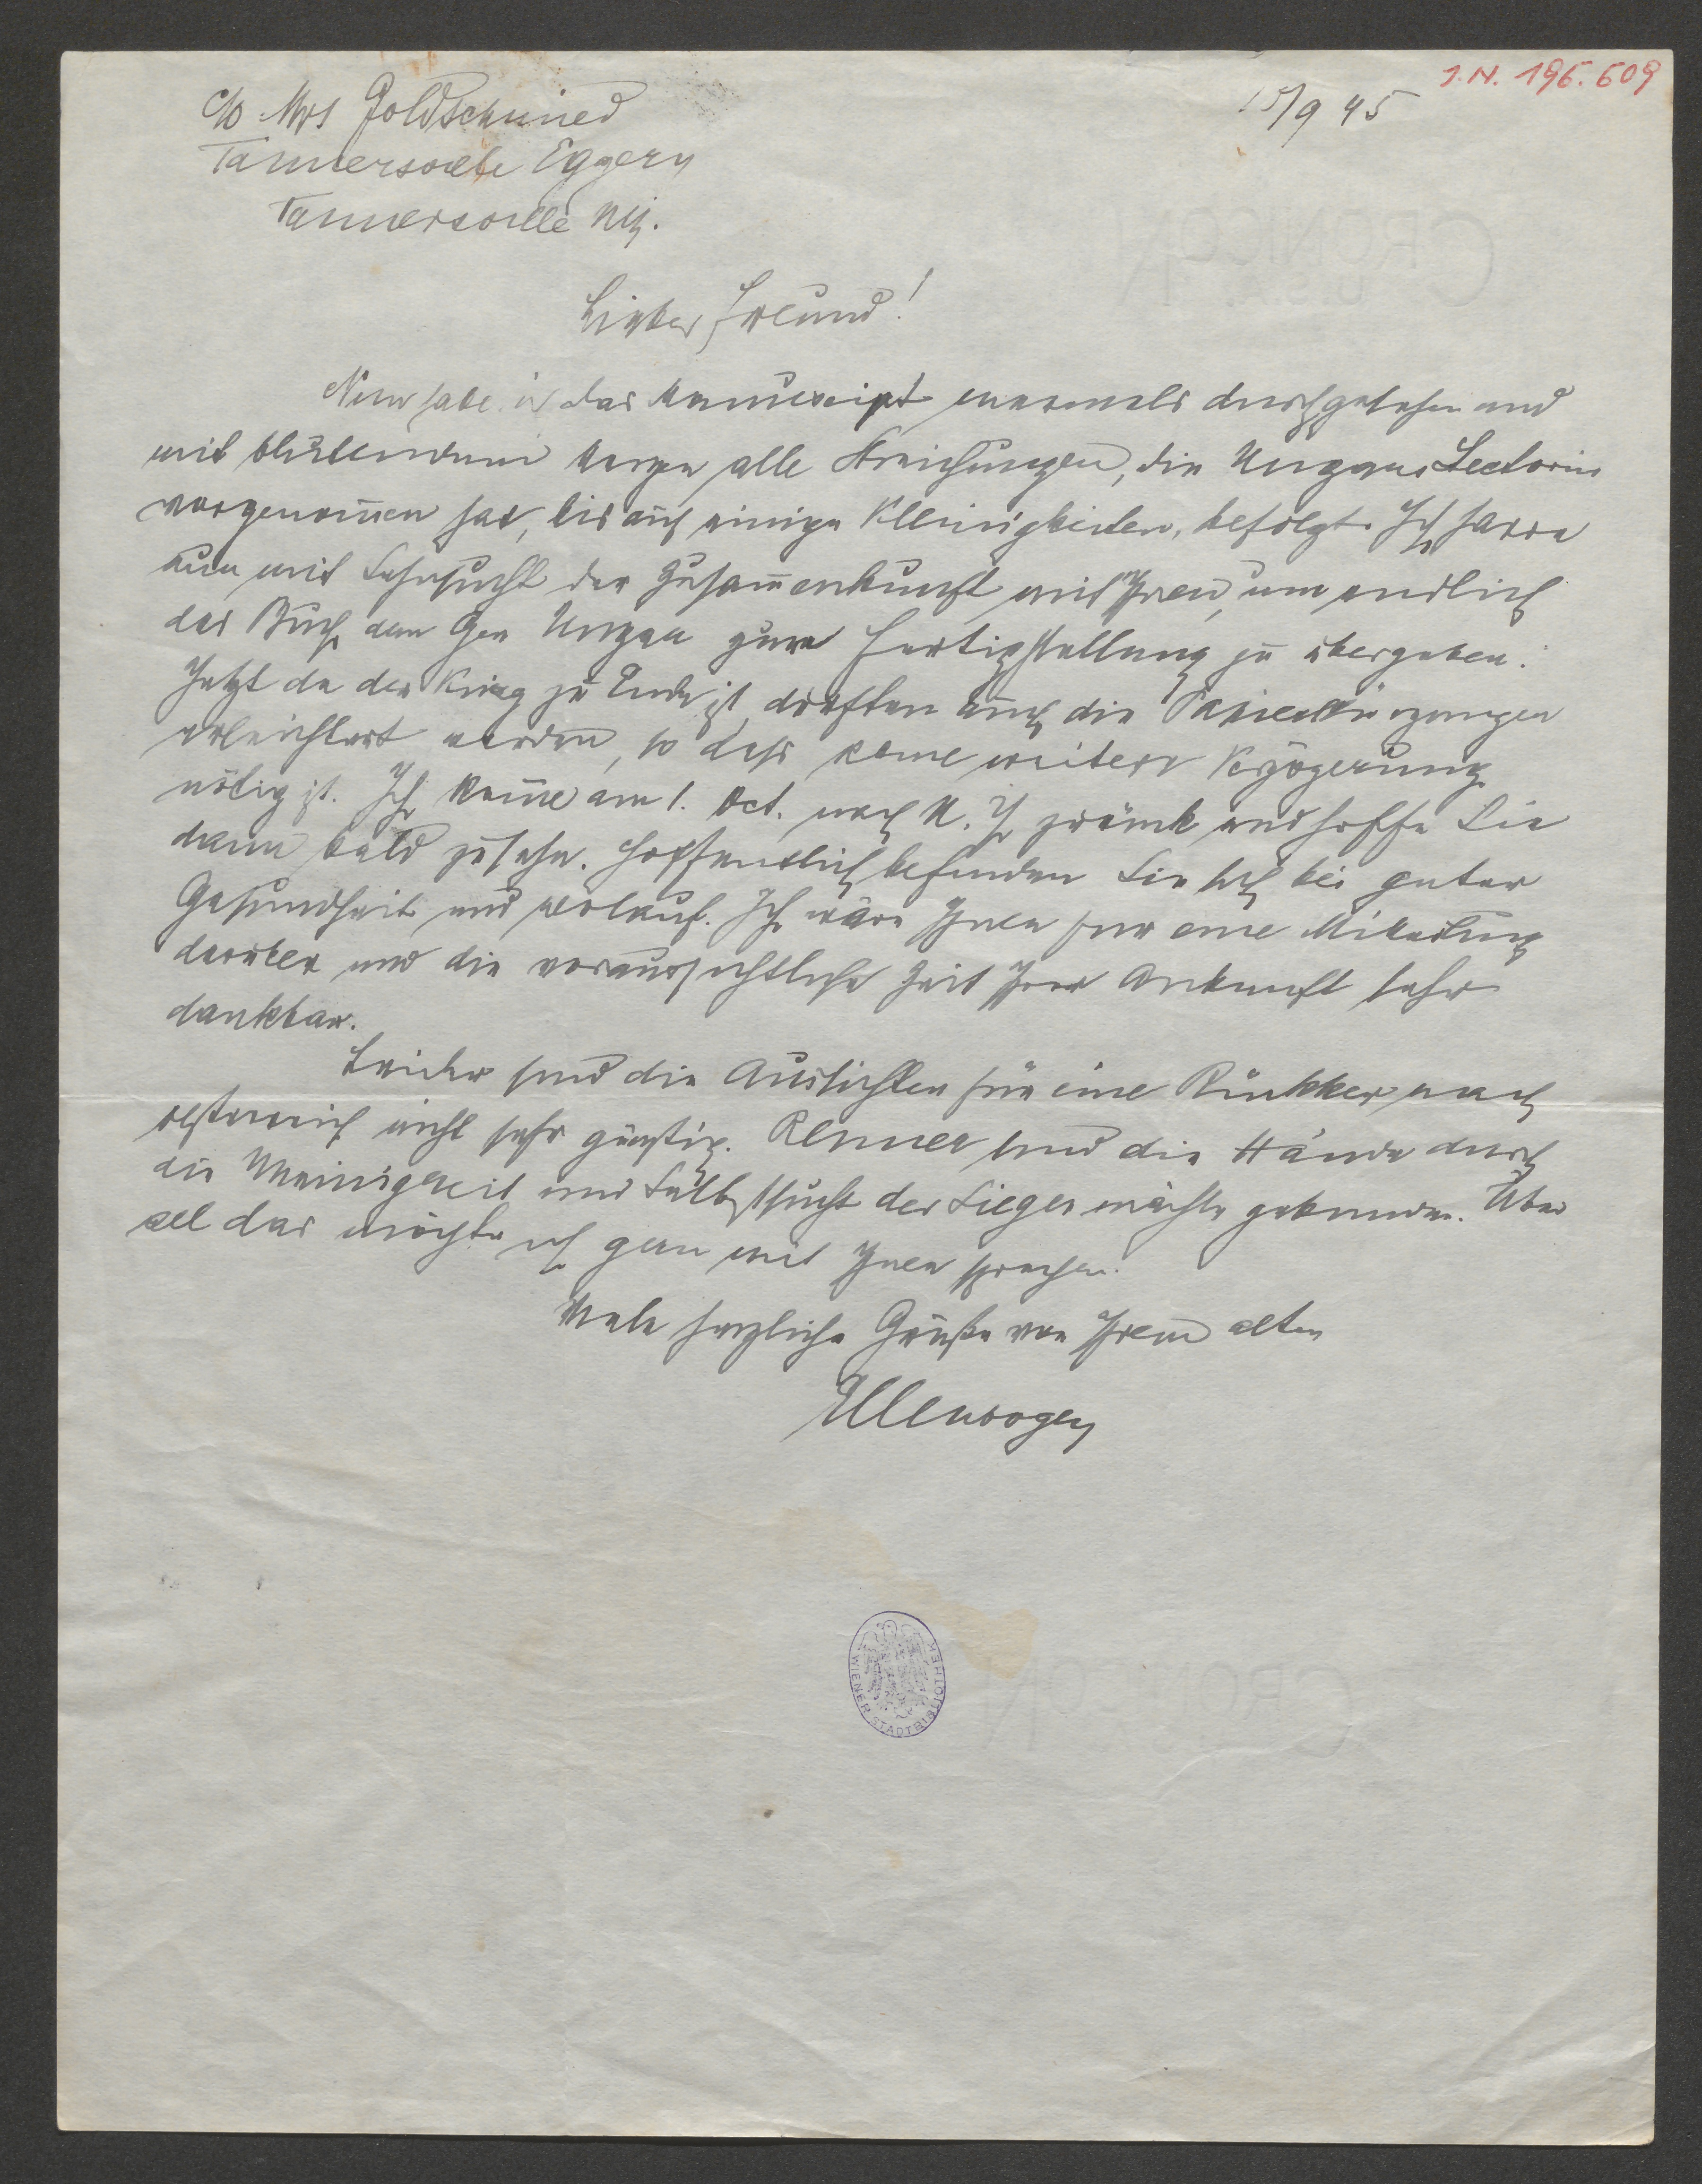 I. N. 196.609
15/9 45
c/o Mrs Goldschmied
Tannersville Eggery
Tannersville NY.
Lieber Freund!
Nun habe ich das Manuscript nochmals durchgesehen und
mit blutendem Herzen alle Streichungen, die Ungars Lectorin
vorgenom̅en hat, bis auf einige Kleinigkeiten, befolgt. Ich harre
nun mit Sehnsucht der Zusam̅enkunft mit Ihnen, um endlich
das Buch dem Gen Ungar zur Fertigstellung zu übergeben.
Jetzt da der Krieg zu Ende ist, dürften auch die Papierkürzungen
erleichtert werden, so dass keine weitere Verzögerung
nötig ist. Ich kom̅e am 1. Oct. nach N.Y. zurück und hoffe Sie
dann bald zu sehn. Hoffentlich befinden Sie sich bei guter
Gesundheit und Ich wäre Ihnen für eine Mitteilung
darüber und die voraussichtliche Zeit Ihrer Ankunft sehr
dankbar.
Leider sind die Aussichten für eine Rückker nach
Oesterreich nicht sehr günstig. Renner sind die Hände durch
die Uneinigkeit und Selbstsucht der Siegermächte gebunden. Über
all das möchte ich gern mit Ihnen sprechen.
Viele herzliche Grüße von Ihrem alten
Ellenbogen
WIENER STADTBIBLIOTHEK